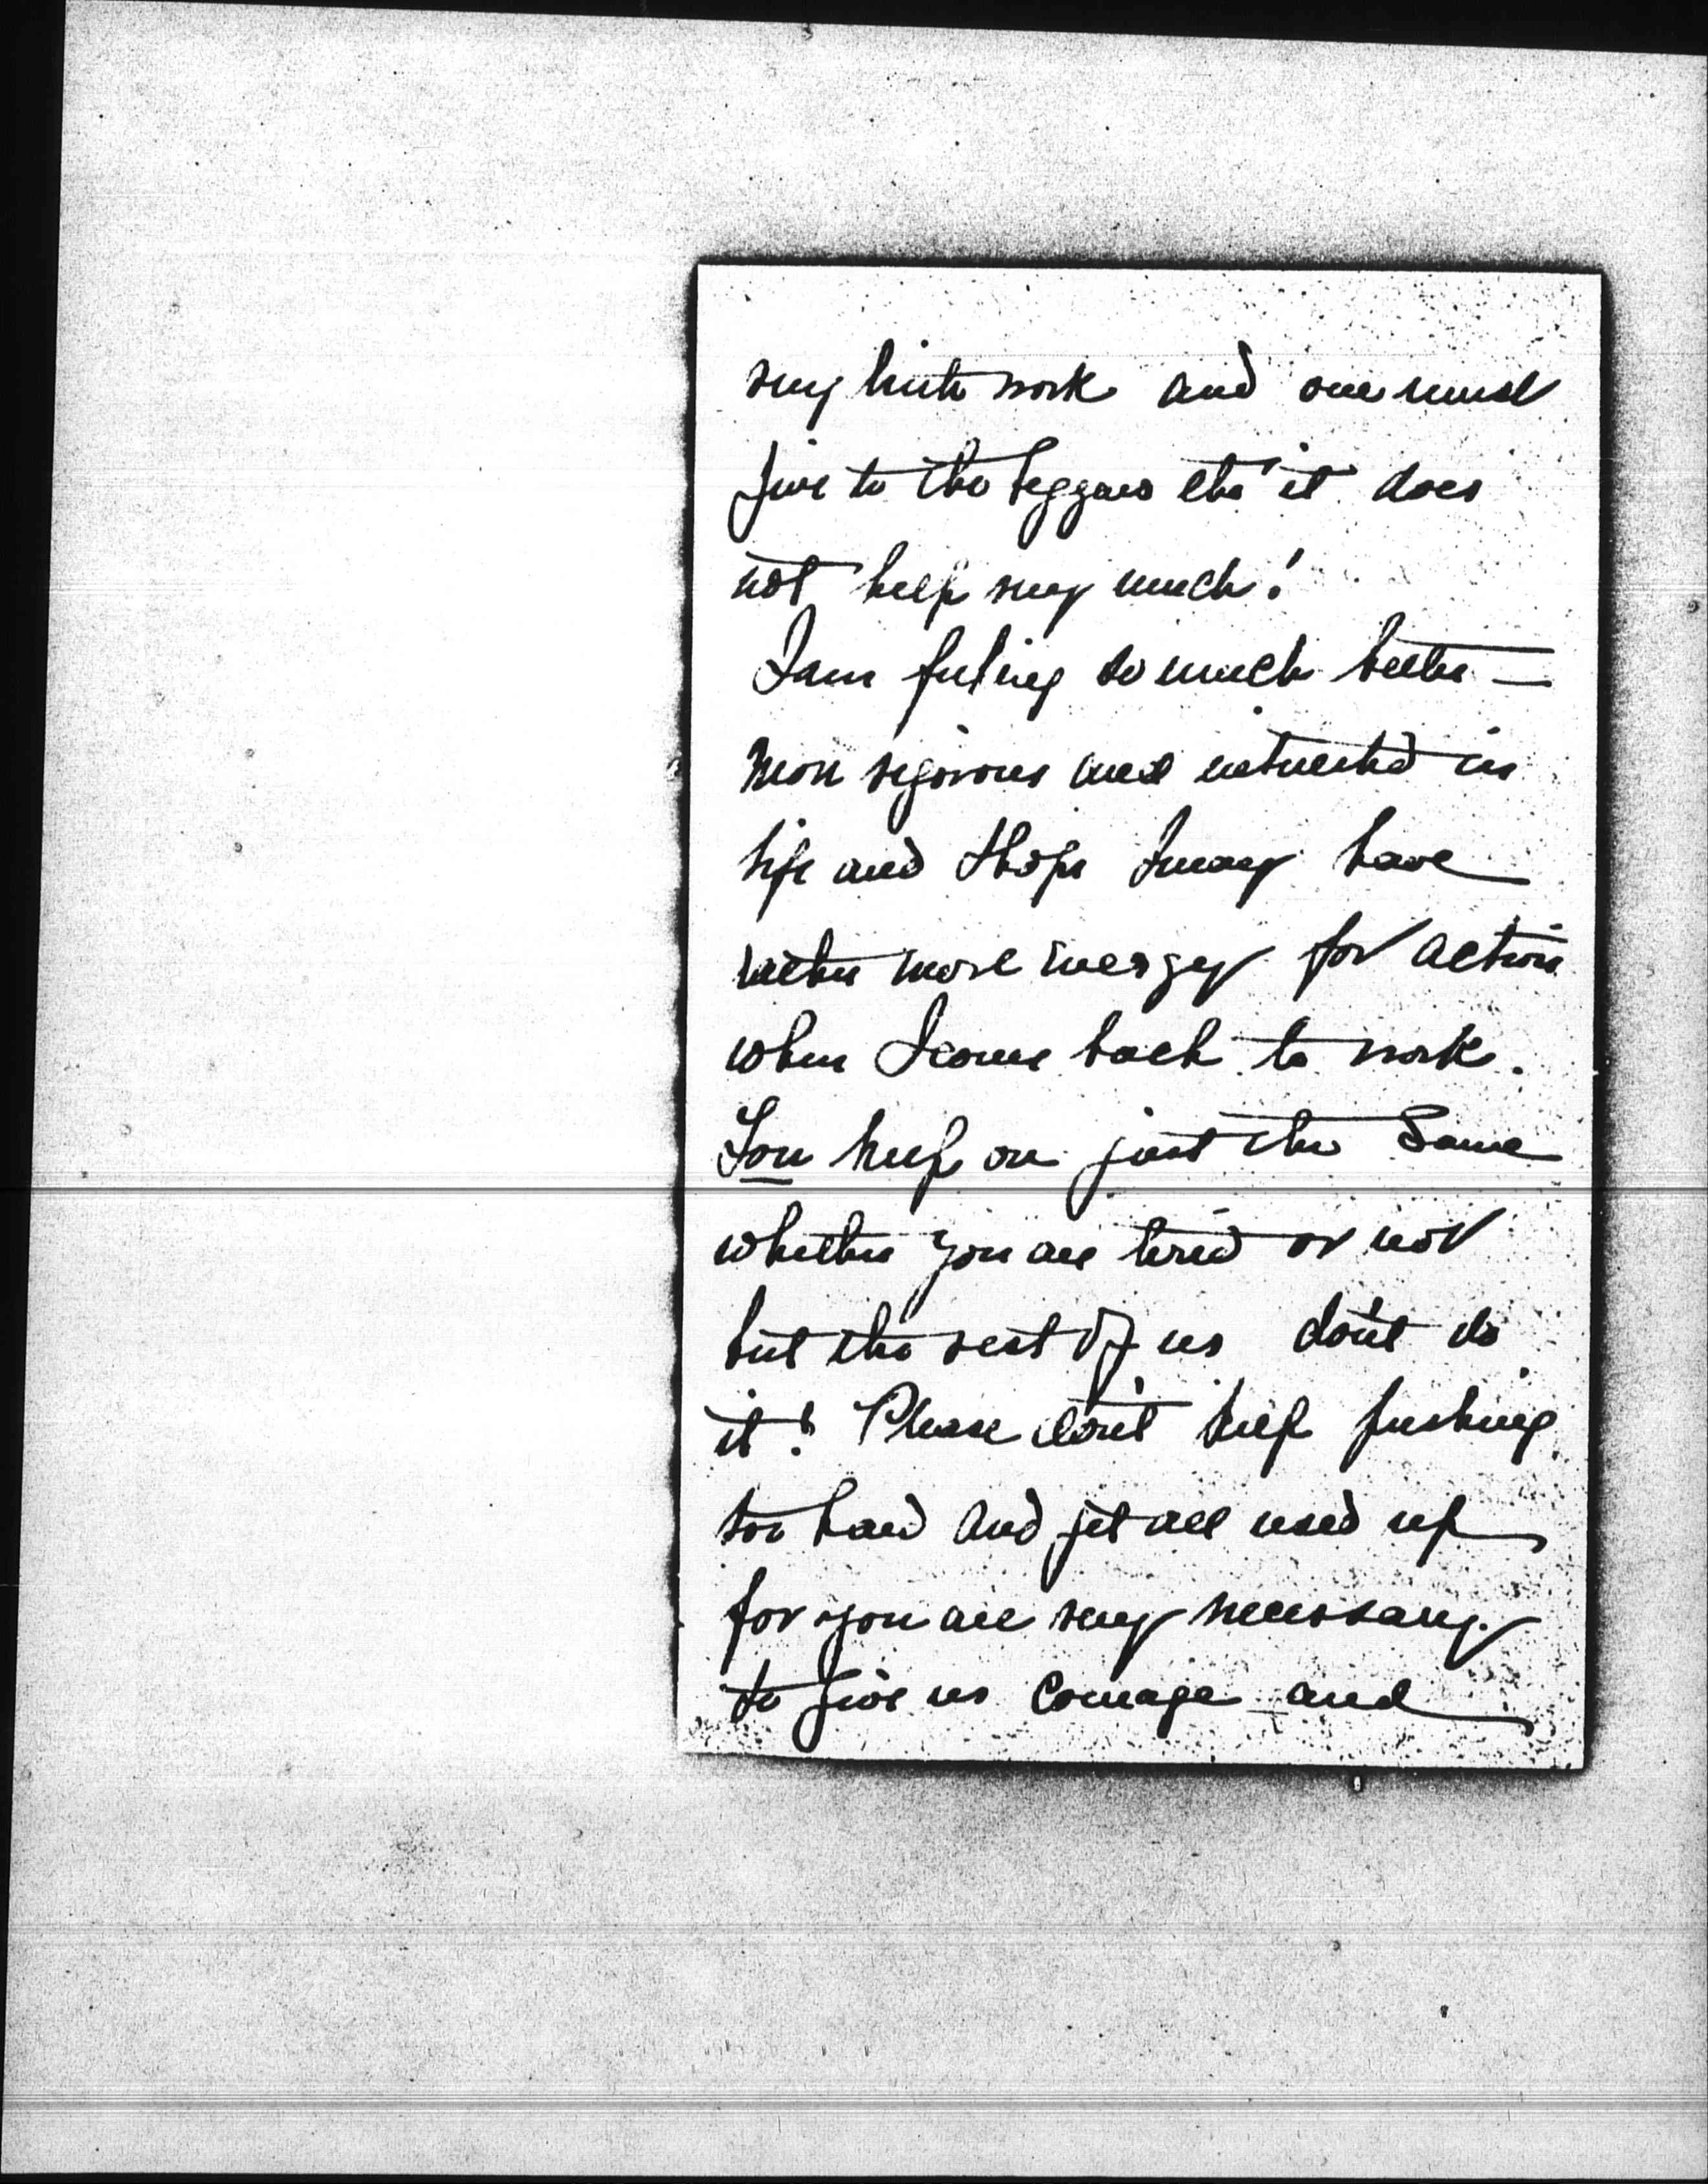 very little work and one must
give to the beggars tho' it does
not help very much!
I am feeling so much better —
more vigorous and interested in
life and I hope I may have
rather more energy for action
when I come back to work.
You keep on just the same
whether you are tired or not
but the rest of us don't do
it! Please don't keep pushing
too hard and get all used up
for you are very necessary
to give us courage and